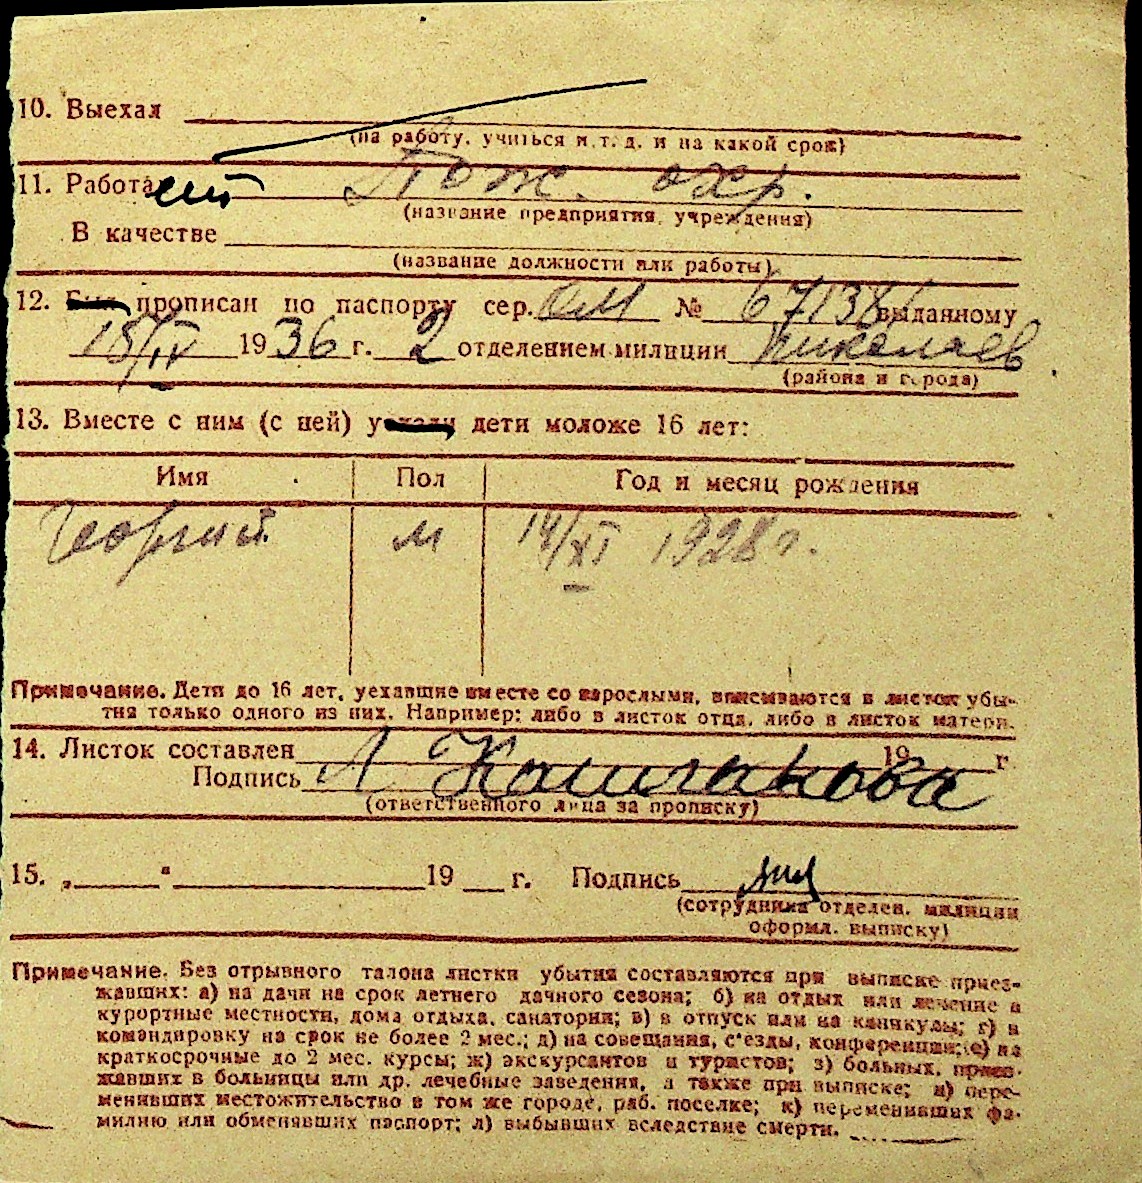 10. Выехал
(на работу, учиться и т. д. и на какой срок)
11. Работает Пож. охр.
(название предприятия, учреждения)
В качестве
(название должности или работы)
12. Был прописан по паспорту сер. ОМ № 671381 выданному
15/IV 1936 г. 2 отделением милиции Николаев
(района и города)
13. Вместе с ним (с ней) уехали дети моложе 16 лет:
Имя Пол Год и месяц рождения
Георгий м 14/XI 1928 г.
Примечание. Дети до 16 лет, уехавшие вместе со взрослыми, вписываются в листок убы-
тия только одного из них. Например: либо в листок отца, либо в листок матери.
14. Листок составлен 19 г
Подпись Л
(ответственного лица за прописку)
15. „ " 19 г. Подпись
(сотрудника отделен. милиции
оформл. выписку)
Примечание. Без отрывного талона листки убытия составляются при выписке приез-
жавших: а) на дачи на срок летнего дачного сезона; б) на отдых или лечение в
курортные местности, дома отдыха, санатории; в) в отпуск или на каникулы; г) в
командировку на срок не более 2 мес.; д) на совещания, с'езды, конференции; е) на
краткосрочные до 2 мес. курсы; ж) экскурсантов и туристов; з) больных, приез-
жавших в больницы или др. лечебные заведения, а также при выписке; и) пере-
менивших местожительство в том же городе, раб. поселке; к) переменивших фа-
милию или обменявших паспорт; л) выбывших вследствие смерти.